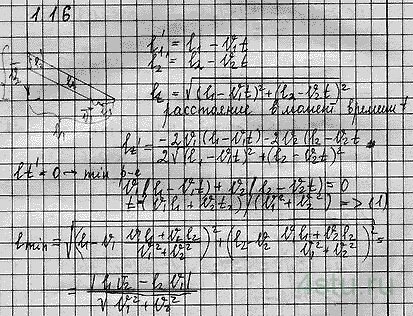 1.16
l₁' = l₁ - v₁t
l₂' = l₂ - v₂t
lt = √((l₁-v₁t)² + (l₂-v₂t)²
расстояние в момент времени t
lt' = (-2v₁(l₁-v₁t) - 2v₂(l₂-v₂t) / 2√((l₁-v₁t)² + (l₂-v₂t)²
lt' = 0 → min р-е
v₁(l₁-v₁t) + v₂(l₂-v₂t) = 0
t = (v₁l₁ + v₂l₂)/(v₁² + v₂²) => (1)
lmin = √((l₁ - v₁ (v₁l₁+v₂l₂)/(v₁²+v₂²))² + (l₂ - v₂ (v₁l₁+v₂l₂)/(v₁²+v₂²))² =
= |l₁v₂ - l₂v₁| / √(v₁² + v₂²)
4stu.ru